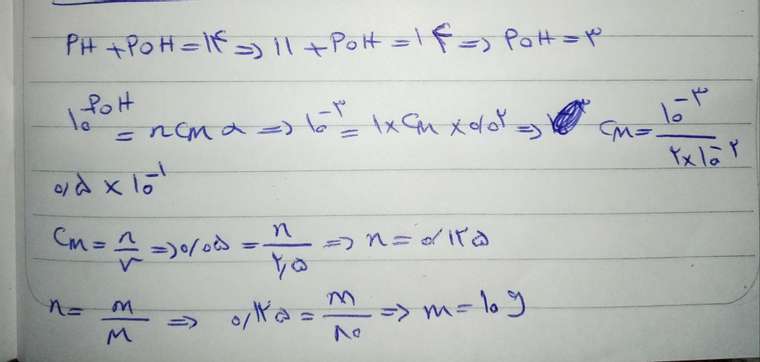 PH + POH = ۱۴ => ۱۱ + POH = ۱۴ => POH = ۳
۱۰^POH = nCM α => ۱۰^-۳ = ۱ × CM × ۰/۰۲ => CM = ۱۰^-۳ / ۲×۱۰^-۲
۰/۵ × ۱۰^-۱
CM = n/v => ۰/۰۵ = n/۲,۵ => n = ۰/۱۲۵
n = m/M => ۰,۱۲۵ = m/۸۰ => m = ۱۰ g